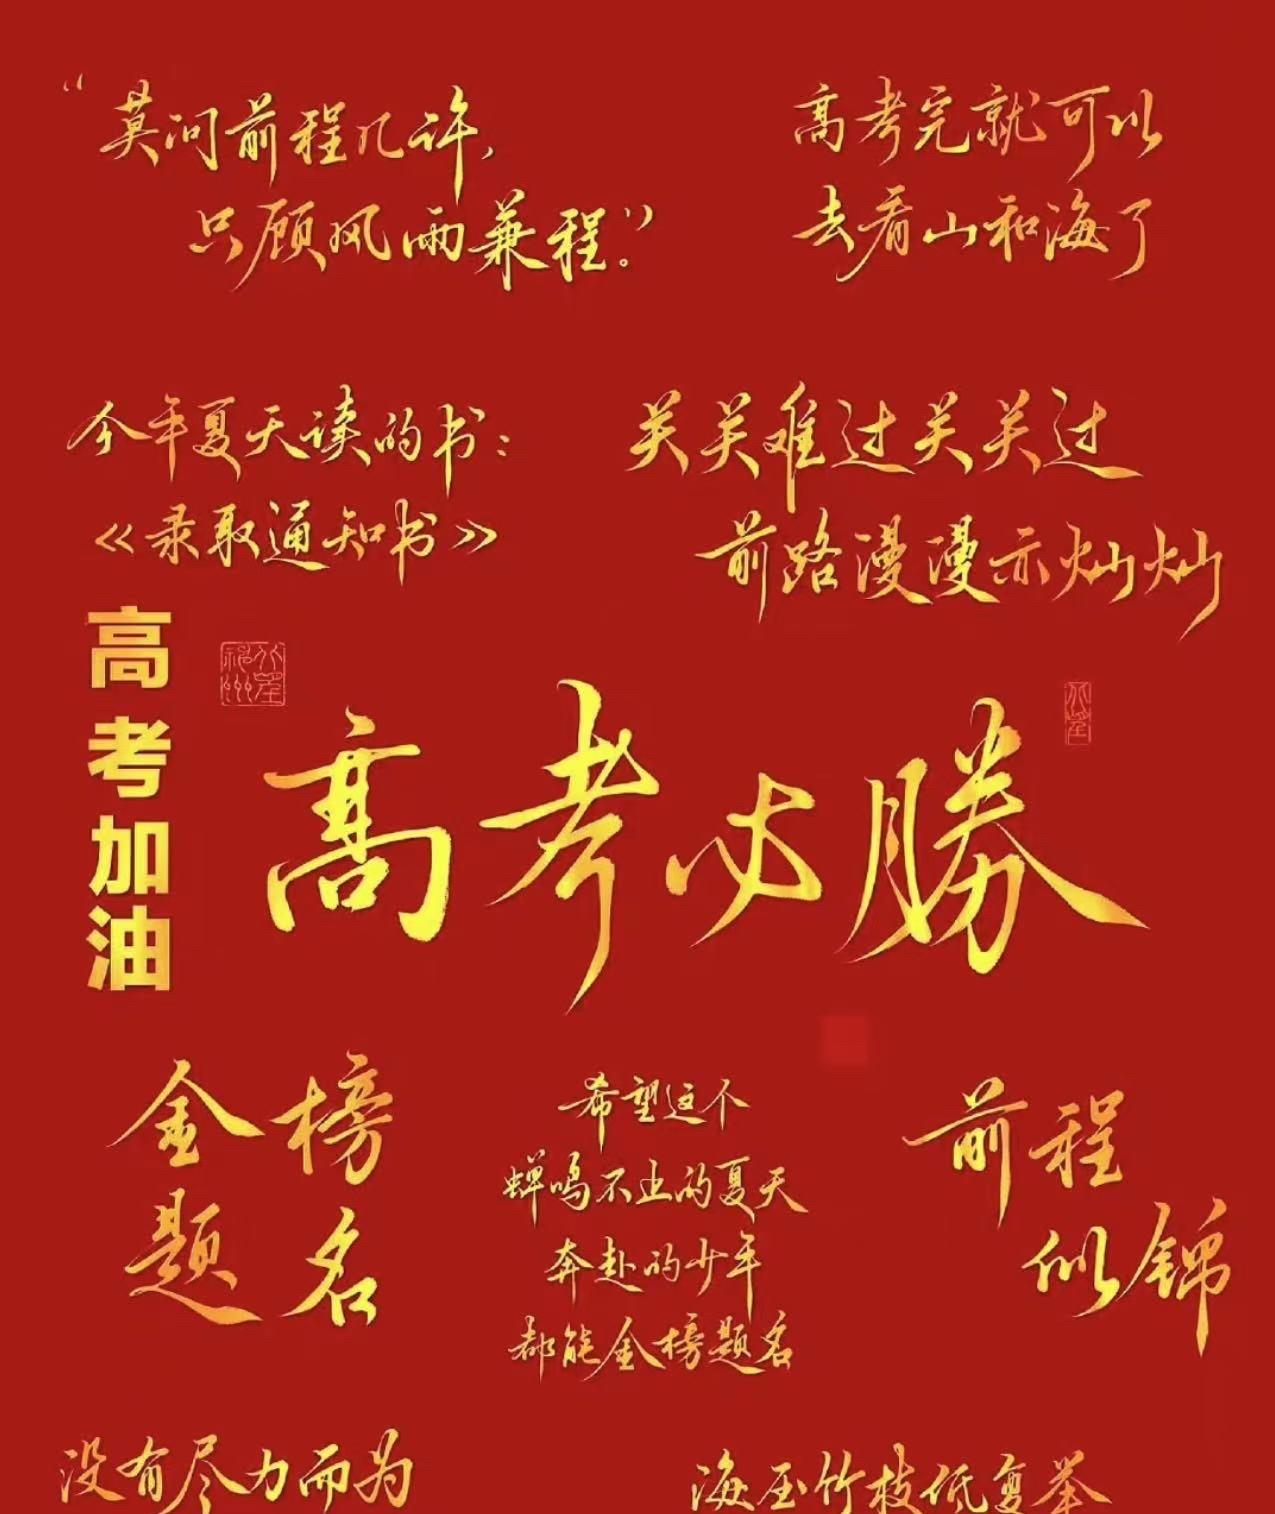 “莫问前程几许，
只顾风雨兼程。”
高考完就可以
去看山和海了
今年夏天读的书：
《录取通知书》
关关难过关关过
前路漫漫亦灿灿
高考加油
高考必勝
金榜
题名
希望这个
蝉鸣不止的夏天
奔赴的少年
都能金榜题名
前程
似锦
没有尽力而为
海压竹枝低复举